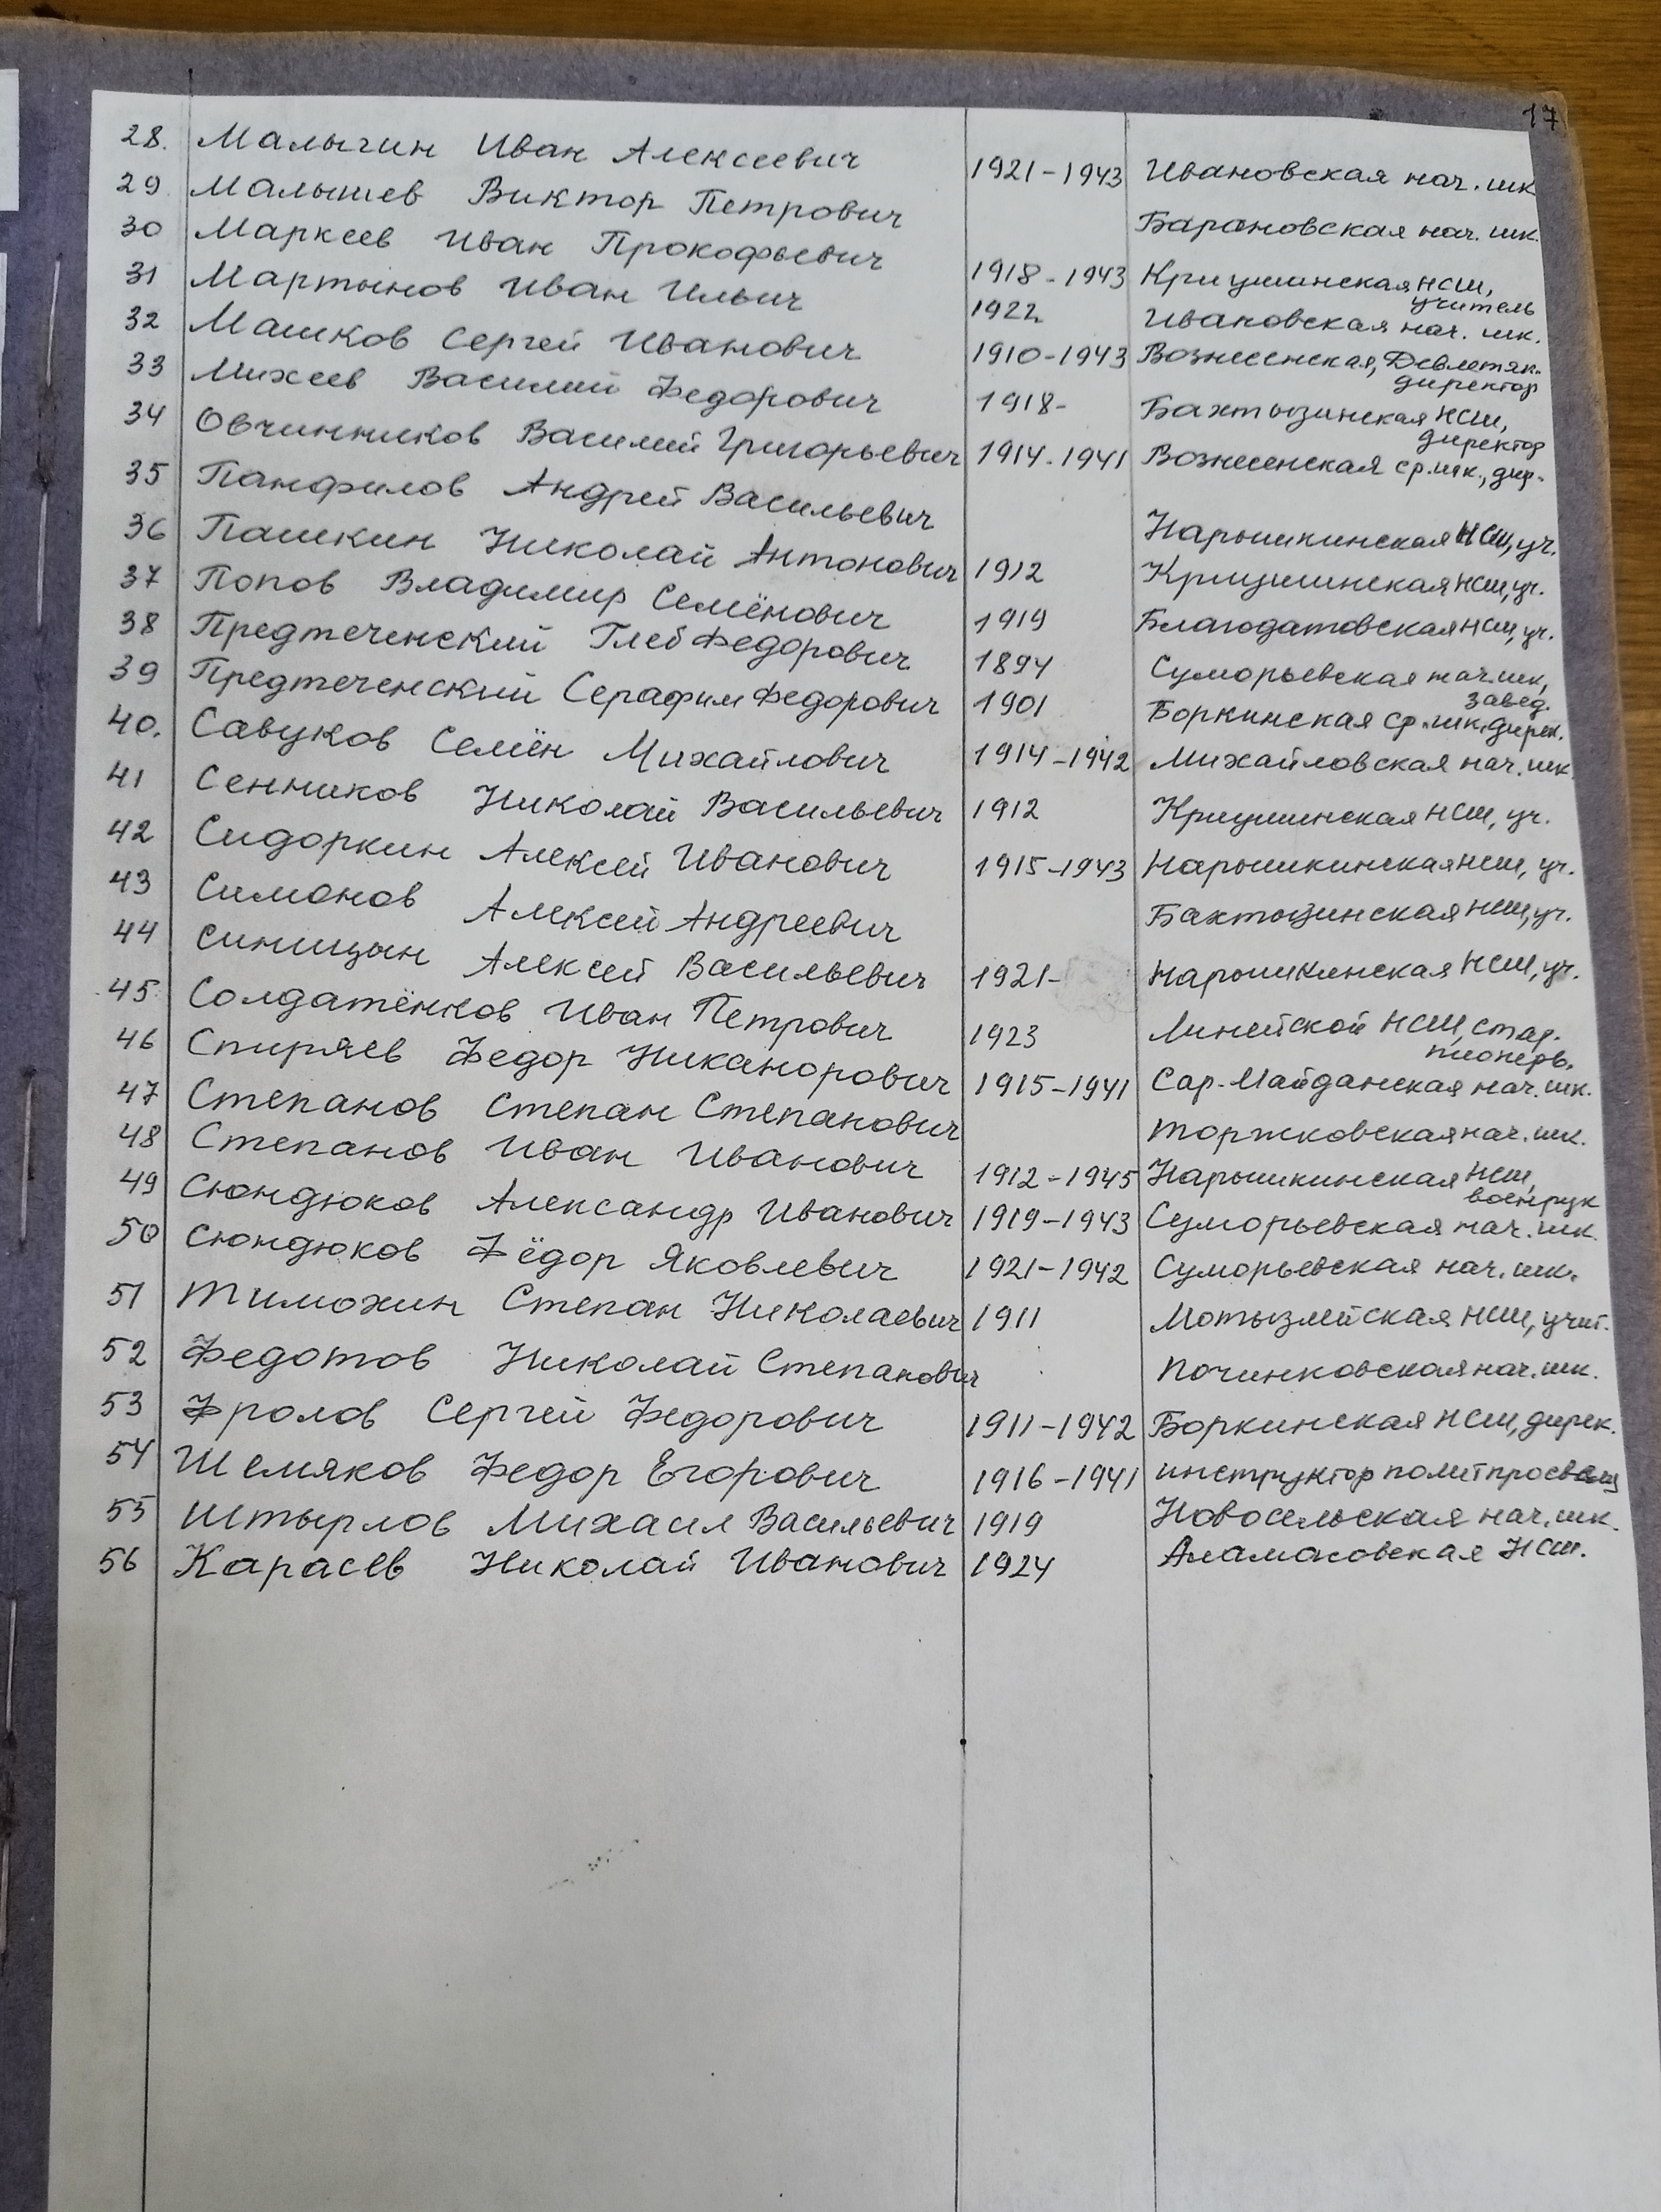 17
28. Малыгин Иван Алексеевич 1921-1943 Ивановская нач. шк
29 Малышев Виктор Петрович Барановская нач. шк.
30 Маркеев Иван Прокофьевич 1918-1943 Криушинская НСШ,
учитель
31 Мартынов Иван Ильич 1922 Ивановская нач. шк.
32 Машков Сергей Иванович 1910-1943 Вознесенская, Девлетяк.
директор
33 Михеев Василий Федорович 1918- Бахтызинская НСШ,
директор
34 Овчинников Василий Григорьевич 1914-1941 Вознесенская ср. шк., дир.
35 Панфилов Андрей Васильевич Нарышкинская НСШ, уч.
36 Пашкин Николай Антонович 1912 Криушинская НСШ, уч.
37 Попов Владимир Семёнович 1919 Благодатовская НСШ, уч.
38 Предтеченский Глеб Федорович 1894 Суморьевская нач. шк,
завед.
39 Предтеченский Серафим Федорович 1901 Боркинская ср. шк. дирек.
40. Савуков Семён Михайлович 1914-1942 Михайловская нач. шк.
41 Сенников Николай Васильевич 1912 Криушинская НСШ, уч.
42 Сидоркин Алексей Иванович 1915-1943 Нарышкинская НСШ, уч.
43 Симонов Алексей Андреевич Бахтызинская НСШ, уч.
44 Синицын Алексей Васильевич 1921- Нарышкинская НСШ, уч.
45 Солдатёнков Иван Петрович 1923 Линейской НСШ, стар.
пионерв.
46 Спиряев Федор Никанорович 1915-1941 Сар-Майданская нач. шк.
47 Степанов Степан Степанович Торжковская нач. шк.
48 Степанов Иван Иванович 1912-1945 Нарышкинская НСШ,
военрук
49 Сюндюков Александр Иванович 1919-1943 Суморьевская нач. шк.
50 Сюндюков Фёдор Яковлевич 1921-1942 Суморьевская нач. шк.
51 Тимохин Степан Николаевич 1911 Мотызлейская НСШ, учит.
52 Федотов Николай Степанович Починковская нач. шк.
53 Фролов Сергей Федорович 1911-1942 Боркинская НСШ, дирек.
54 Шемяков Федор Егорович 1916-1941 инструктор политпросвещ
55 Штырлов Михаил Васильевич 1919 Новосельская нач. шк.
56 Карасев Николай Иванович 1924 Аламасовская НСШ.